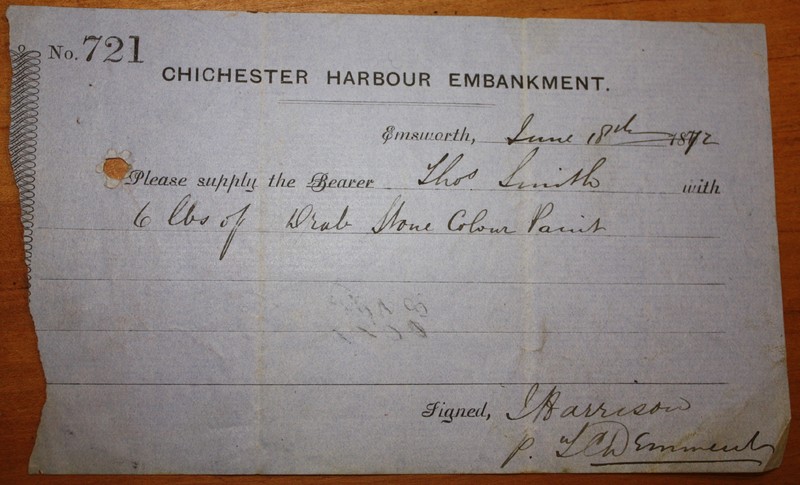 No. 721
CHICHESTER HARBOUR EMBANKMENT.
Emsworth, June 18th 1872
Please supply the Bearer Thos Smith with
6 lbs of Drab Stone Colour Paint
Signed, J Harrison
p.